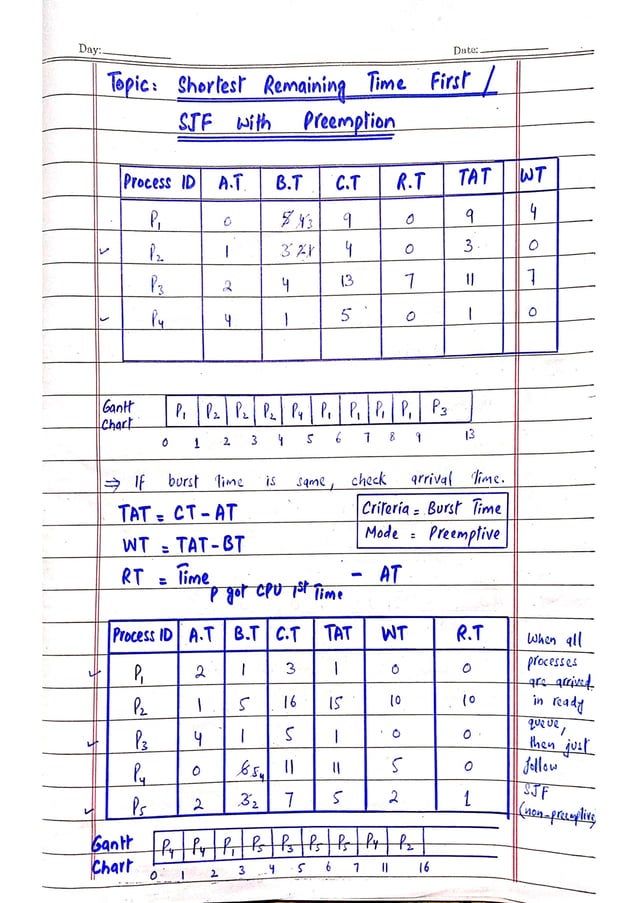 Day:
Date:
Topic: Shortest Remaining Time First /
SJF with Preemption
Process ID A.T B.T C.T R.T TAT WT
P1 0 5 4 3 9 0 9 4
P2 1 3 2 1 4 0 3 0
P3 2 4 13 7 11 7
P4 4 1 5 0 1 0
Gantt Chart P1 P2 P2 P2 P4 P1 P1 P1 P1 P3
0 1 2 3 4 5 6 7 8 9 13
⇒ If burst Time is same, check arrival Time.
TAT = CT - AT
Criteria = Burst Time
WT = TAT - BT
Mode = Preemptive
RT = Time P got CPU 1st Time - AT
Process ID A.T B.T C.T TAT WT R.T
P1 2 1 3 1 0 0
P2 1 5 16 15 10 10
P3 4 1 5 1 0 0
P4 0 6 5 4 11 11 5 0
P5 2 3 2 7 5 2 1
When all
processes
are arrived
in ready
queue,
then just
follow
SJF
(non-preemptive
Gantt Chart P4 P4 P1 P5 P3 P5 P5 P4 P2
0 1 2 3 4 5 6 7 11 16